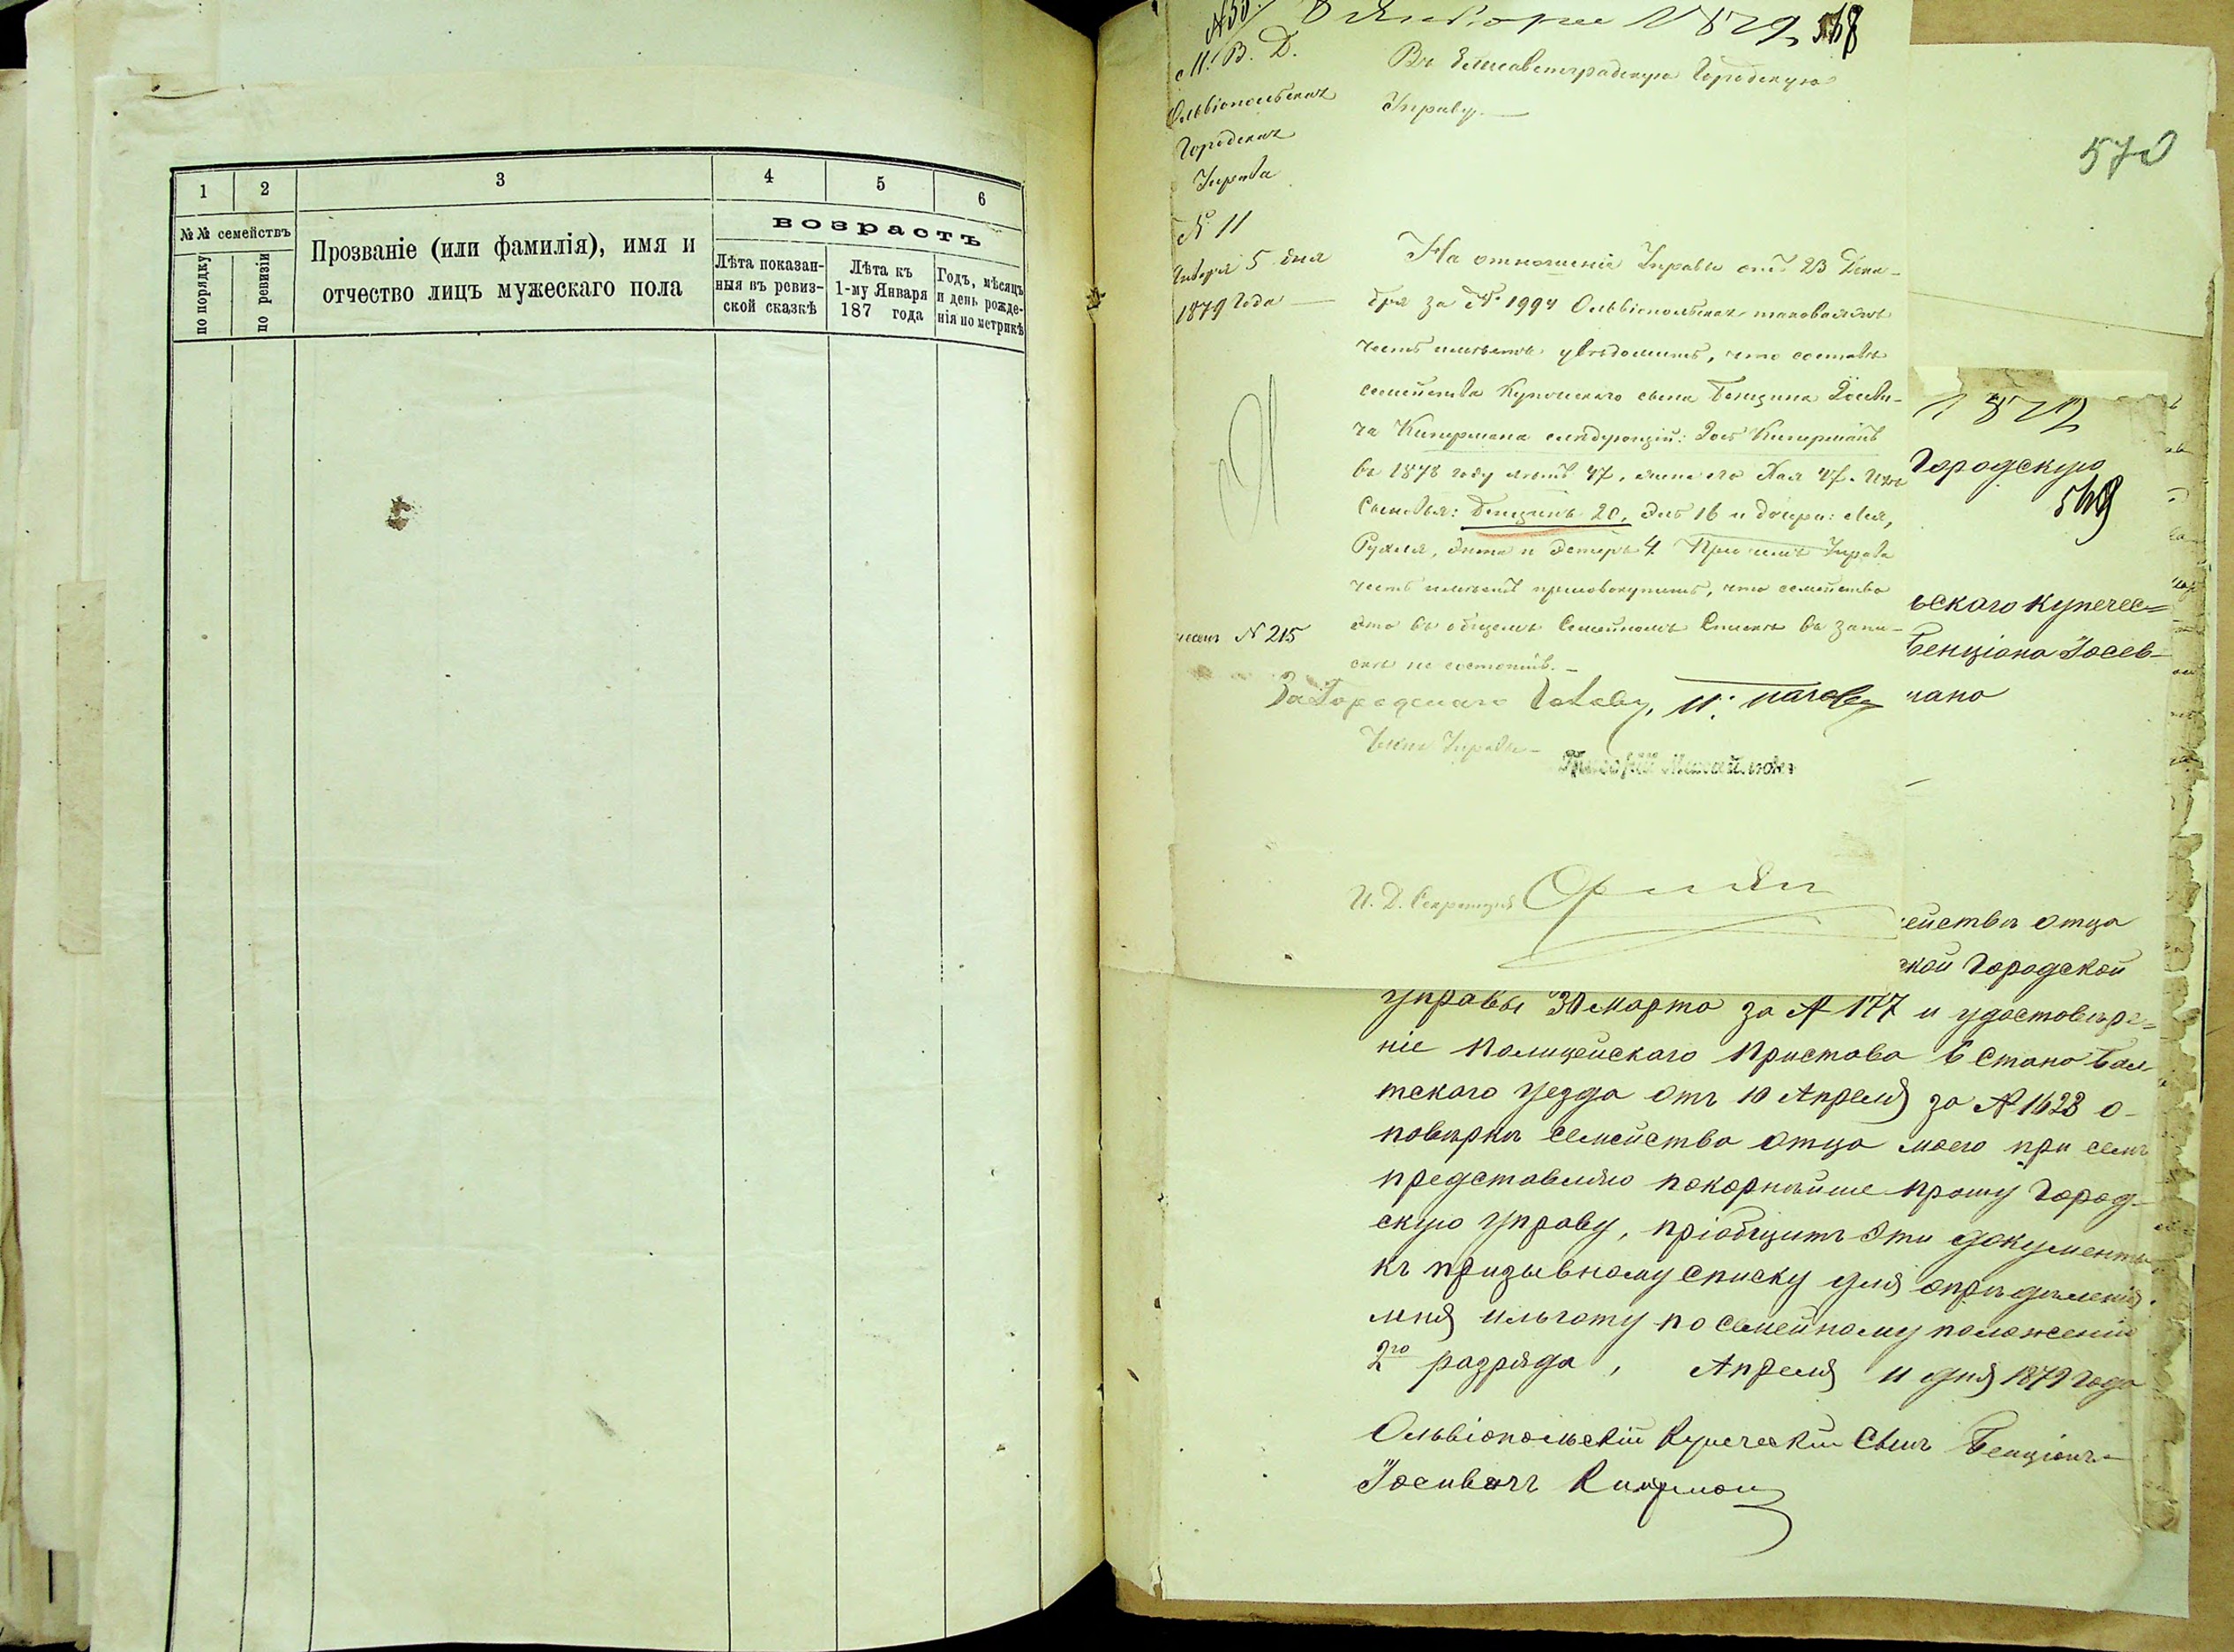 1
2
3
4
5
6
№№ семействъ
по порядку
по ревизіи
Прозваніе (или фамилія), имя и
отчество лицъ мужескаго пола
возрастъ
Лѣта показан-
ныя въ ревиз-
ской сказкѣ
Лѣта къ
1-му Января
187 года
Годъ, мѣсяцъ
и день рожде-
нія по метрикѣ
8 Января 1879 568
М. В. Д.
Ольвіопольская
Городская
Управа
№ 11
Января 5 дня
1879 Года
№ 215
Въ Елисаветградскую Городскую
Управу.
На отношеніе Управы отъ 23 Дека-
бря за № 1994 Ольвіопольская таковая
честь имѣетъ увѣдомить, что составъ
семейства Купеческаго сына Бенциона Іосеви-
ча Кипермана слѣдующій: Іось Киперманъ
въ 1878 году лѣтъ 47, жена его Хая 47. Ихъ
Сыновья: Бенціонъ 20, 16 и дочери: Лея,
Рухля, и Эстеръ 4. При чемъ Управа
честь имѣетъ присовокупить, что семейство
это въ общемъ Семейномъ Спискѣ въ запи-
си не состоитъ.
За Городскаго Голову,
Членъ Управы
И. Д. Секретаря
570
Городскую
569
ьскаго купечес=
Бенціона Іосев-
мано
ейства отца
ской Городской
управы 30 Марта за № 177 и удостовѣре=
ніе Полицейскаго Пристава 6 Стана Бал-
тскаго уезда отъ 10 Апреля за № 1623 о-
повѣркѣ семейства отца моего при семъ
представляю покорнѣйше прошу Город-
скую управу, пріобщить эти документы
къ призывному списку для опредѣленія
мнѣ льготу по семейному положенію
2го разряда, Апреля 11 дня 1879 года
Ольвіопольскій Купеческій Сынъ Бенціонъ
Іосивичъ Киперман